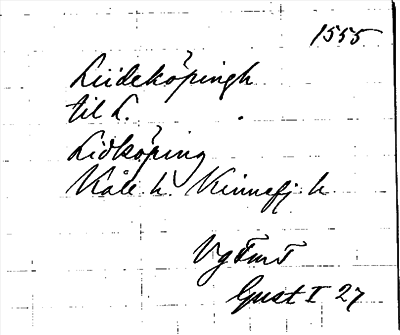 1555
Liideköpingh
til L.
Lidköping
Kåle h. Kinnefj. h
Vg Fm F
Gust I 27